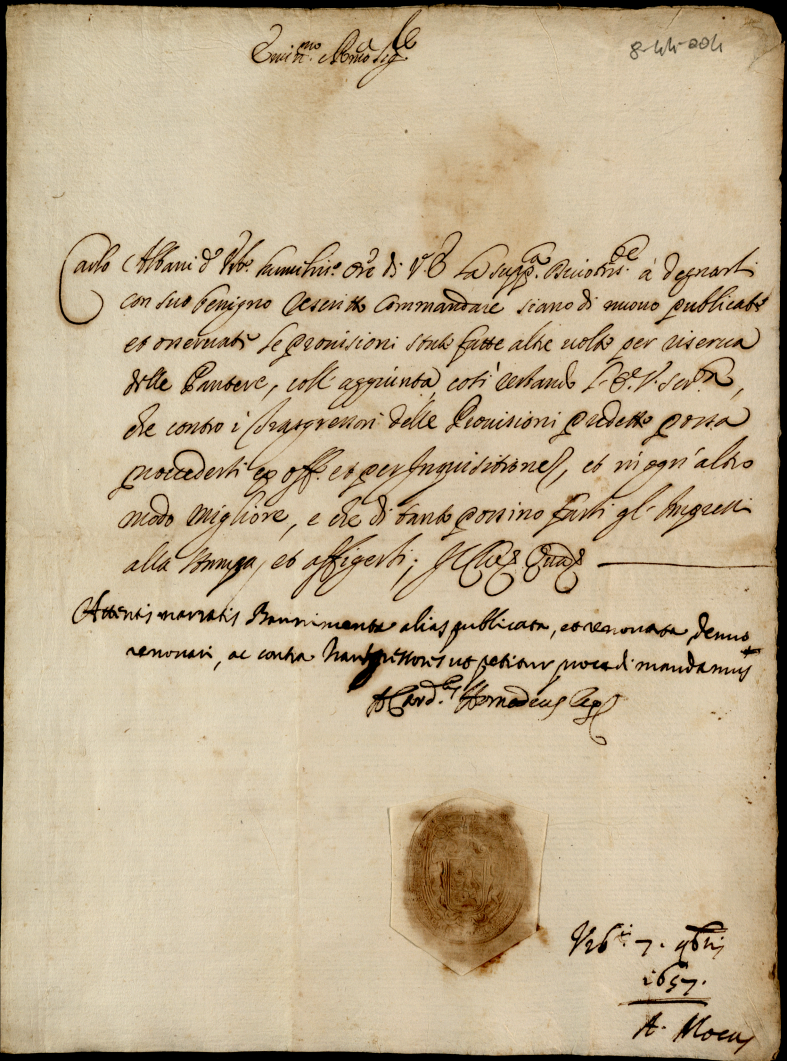 Emin.mo e R.mo Sig.re
8-44-204
Carlo Albani d'Urb.o humiliss.o Ore di V.E. la supp.ca a degnarsi
con suo benigno rescritto commandare siano di nuovo publicate
et osservate le provisioni state fatte altre volte per riserva
delle Pantere, coll'aggiunta così restando
che contro i trasgressori delle Provisioni predette possa
procedersi ex off.o et per Inquisitione, et in ogn'altro
modo migliore, e che di tanto possino farsi gl'
alla stampa, et affigersi;
Attentis narratis Bannimenta alias publicata, et renovata, denuo
renovari, ac contra transgressores ut petitur procedi mandamus
A Card.lis Homodeus Leg.s
Urb.i 7. 9bris
1657.
A.